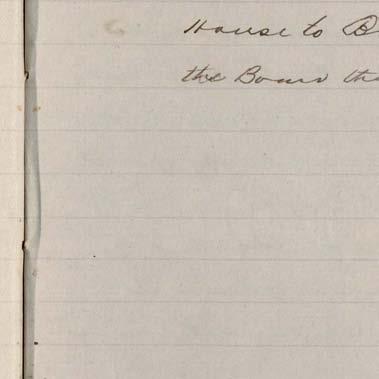 House to B
the Board th